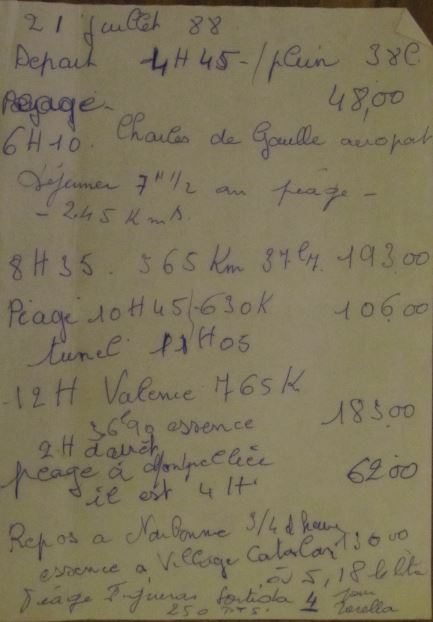 21 juillet 88
Depart 4H45-/plein 38l.
Péage- 48,00
6H10. Charles de Gaulle aeroport
Déjeuner 7H1/2 au péage-
- 245 Kms.
8H35. 365 Km 37l 193.00
Péage 10H45/-630K 106.00
tunel 11H05
12H Valence 765K
36l90 essence 183.00
2H d'arrêt
péage à Montpellier 62.00
il est 4H
Repos a Narbonne 3/4 d heure
essence a Village Catalan 130.00
à 5,18 le litre
Péage Figueras Sortida 4 pour
250 pts. Torella